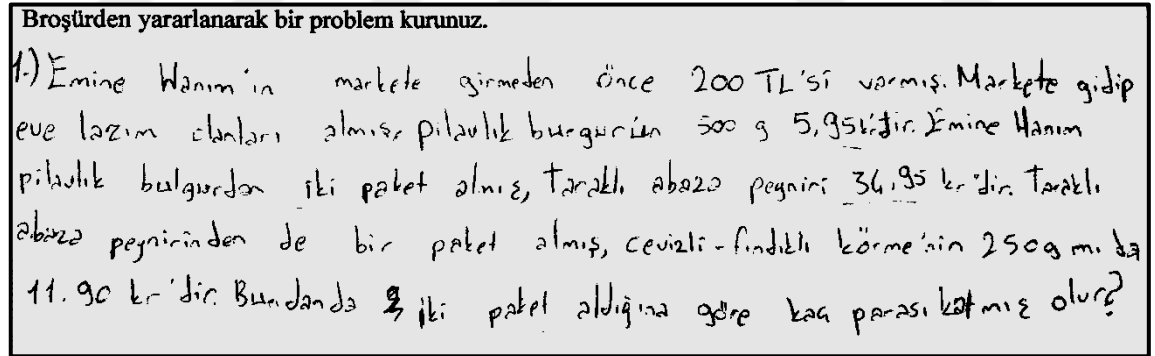 Broşürden yararlanarak bir problem kurunuz.
1.) Emine Hanım'ın markete girmeden önce 200 TL'si varmış. Markete gidip
eve lazım olanları almış, pilavlık burgurun 500 g 5,95kr'dir. Emine Hanım
pilavlık bulgurdan iki paket almış, Taraklı abaza peyniri 34,95 kr'dir. Taraklı
abaza peynirinden de bir paket almış, cevizli-fındıklı körme'nin 250g mı da
11.90 kr'dir. Bundanda iki paket aldığına göre kaç parası kalmış olur?